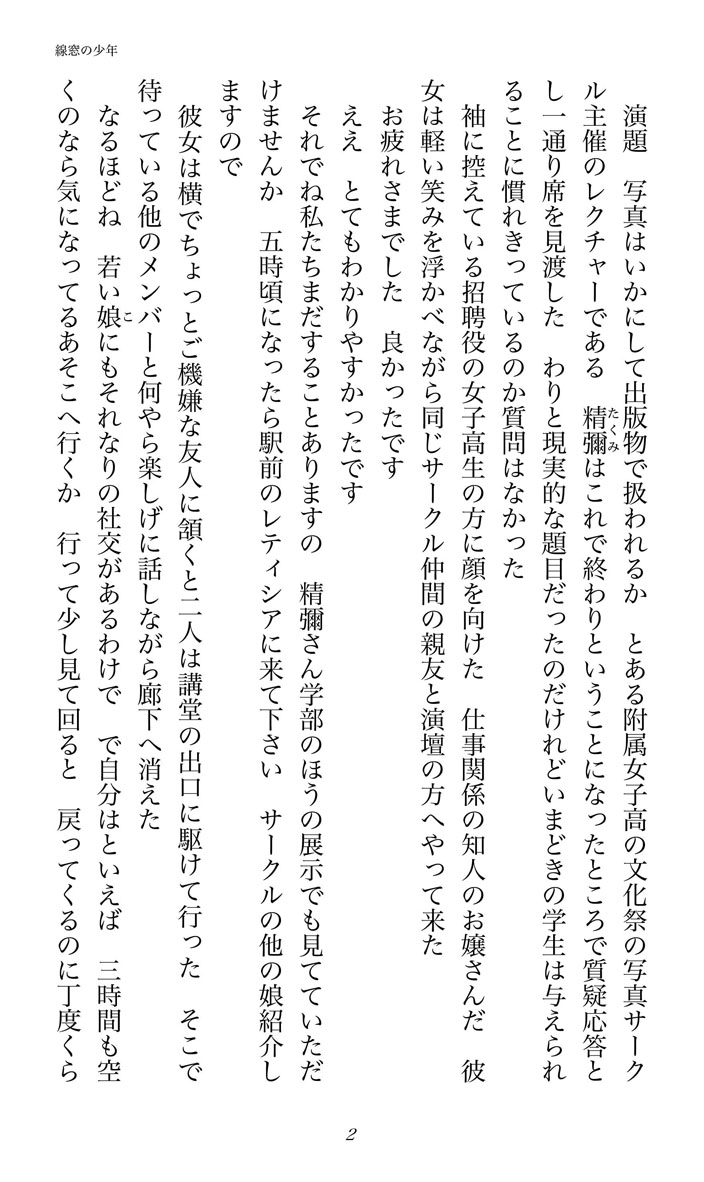 線窓の少年
　演題　写真はいかにして出版物で扱われるか　とある附属女子高の文化祭の写真サーク
ル主催のレクチャーである　精彌はこれで終わりということになったところで質疑応答と
たくみ
し一通り席を見渡した　わりと現実的な題目だったのだけれどいまどきの学生は与えられ
ることに慣れきっているのか質問はなかった
　袖に控えている招聘役の女子高生の方に顔を向けた　仕事関係の知人のお嬢さんだ　彼
女は軽い笑みを浮かべながら同じサークル仲間の親友と演壇の方へやって来た
　お疲れさまでした　良かったです
　ええ　とてもわかりやすかったです
　それでね私たちまだすることありますの　精彌さん学部のほうの展示でも見てていただ
けませんか　五時頃になったら駅前のレティシアに来て下さい　サークルの他の娘紹介し
ますので
　彼女は横でちょっとご機嫌な友人に頷くと二人は講堂の出口に駆けて行った　そこで
待っている他のメンバーと何やら楽しげに話しながら廊下へ消えた
　なるほどね　若い娘にもそれなりの社交があるわけで　で自分はといえば　三時間も空
こ
くのなら気になってるあそこへ行くか　行って少し見て回ると　戻ってくるのに丁度くら
2